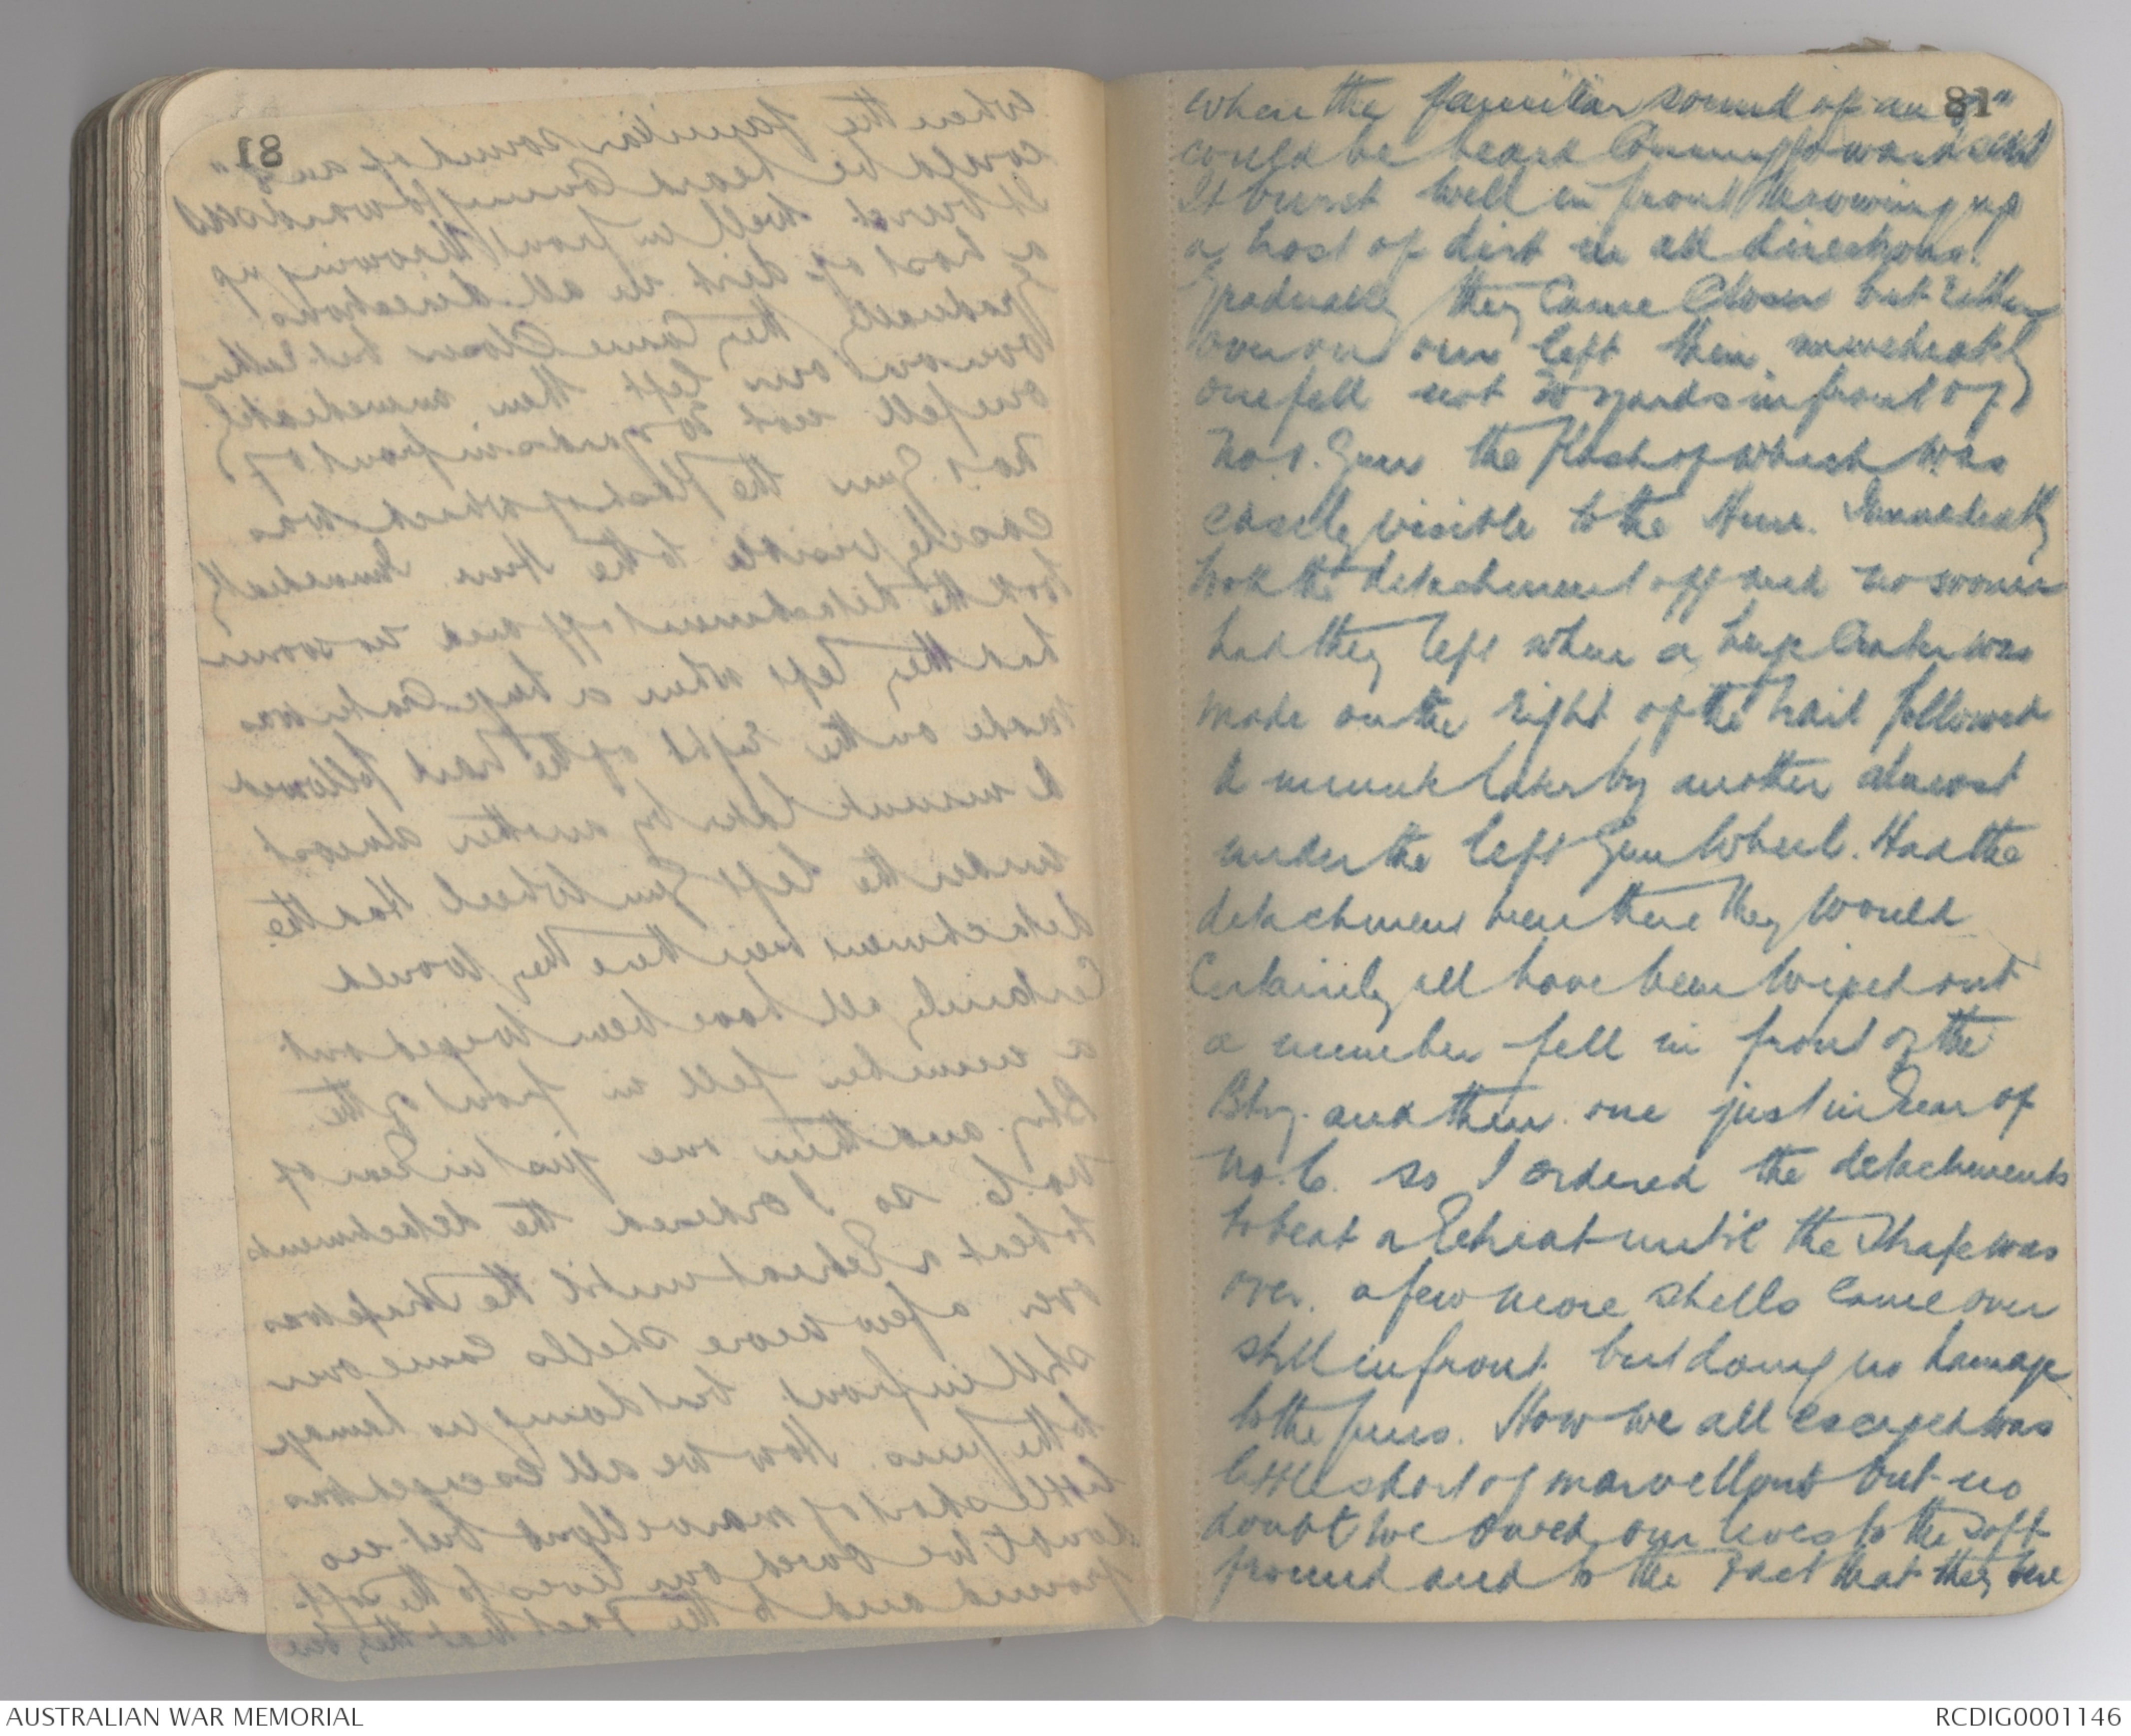 81
when the familiar sound of an 8"
could be heard Coming towards us
It burst well in front throwing up
a host of dirt in all directions.
Gradually they Came Closer but either
over or our left then immediately
one fell not 20 yards in front of
No 1. Gun the flash of which was
easily visible to the Hun. Immediately
took the detachment off and no sooner
had they left when a huge Crater was
made on the right of the trail followed
a minute later by another almost
under the left Gun Wheel. Had the
detachment been there they would
Certainly all have been wiped out
a number fell in front of the
Bty. and then one just in Rear of
No. 6. so I ordered the detachments
to beat a Retreat until the Strafe was
over. a few more shells Came over
still in front but doing no damage
to the guns. How we all escaped was
little short of marvellous but no
doubt we owed our lives to the soft
ground and to the Fact that they
AUSTRALIAN WAR MEMORIAL
RCDIG0001146